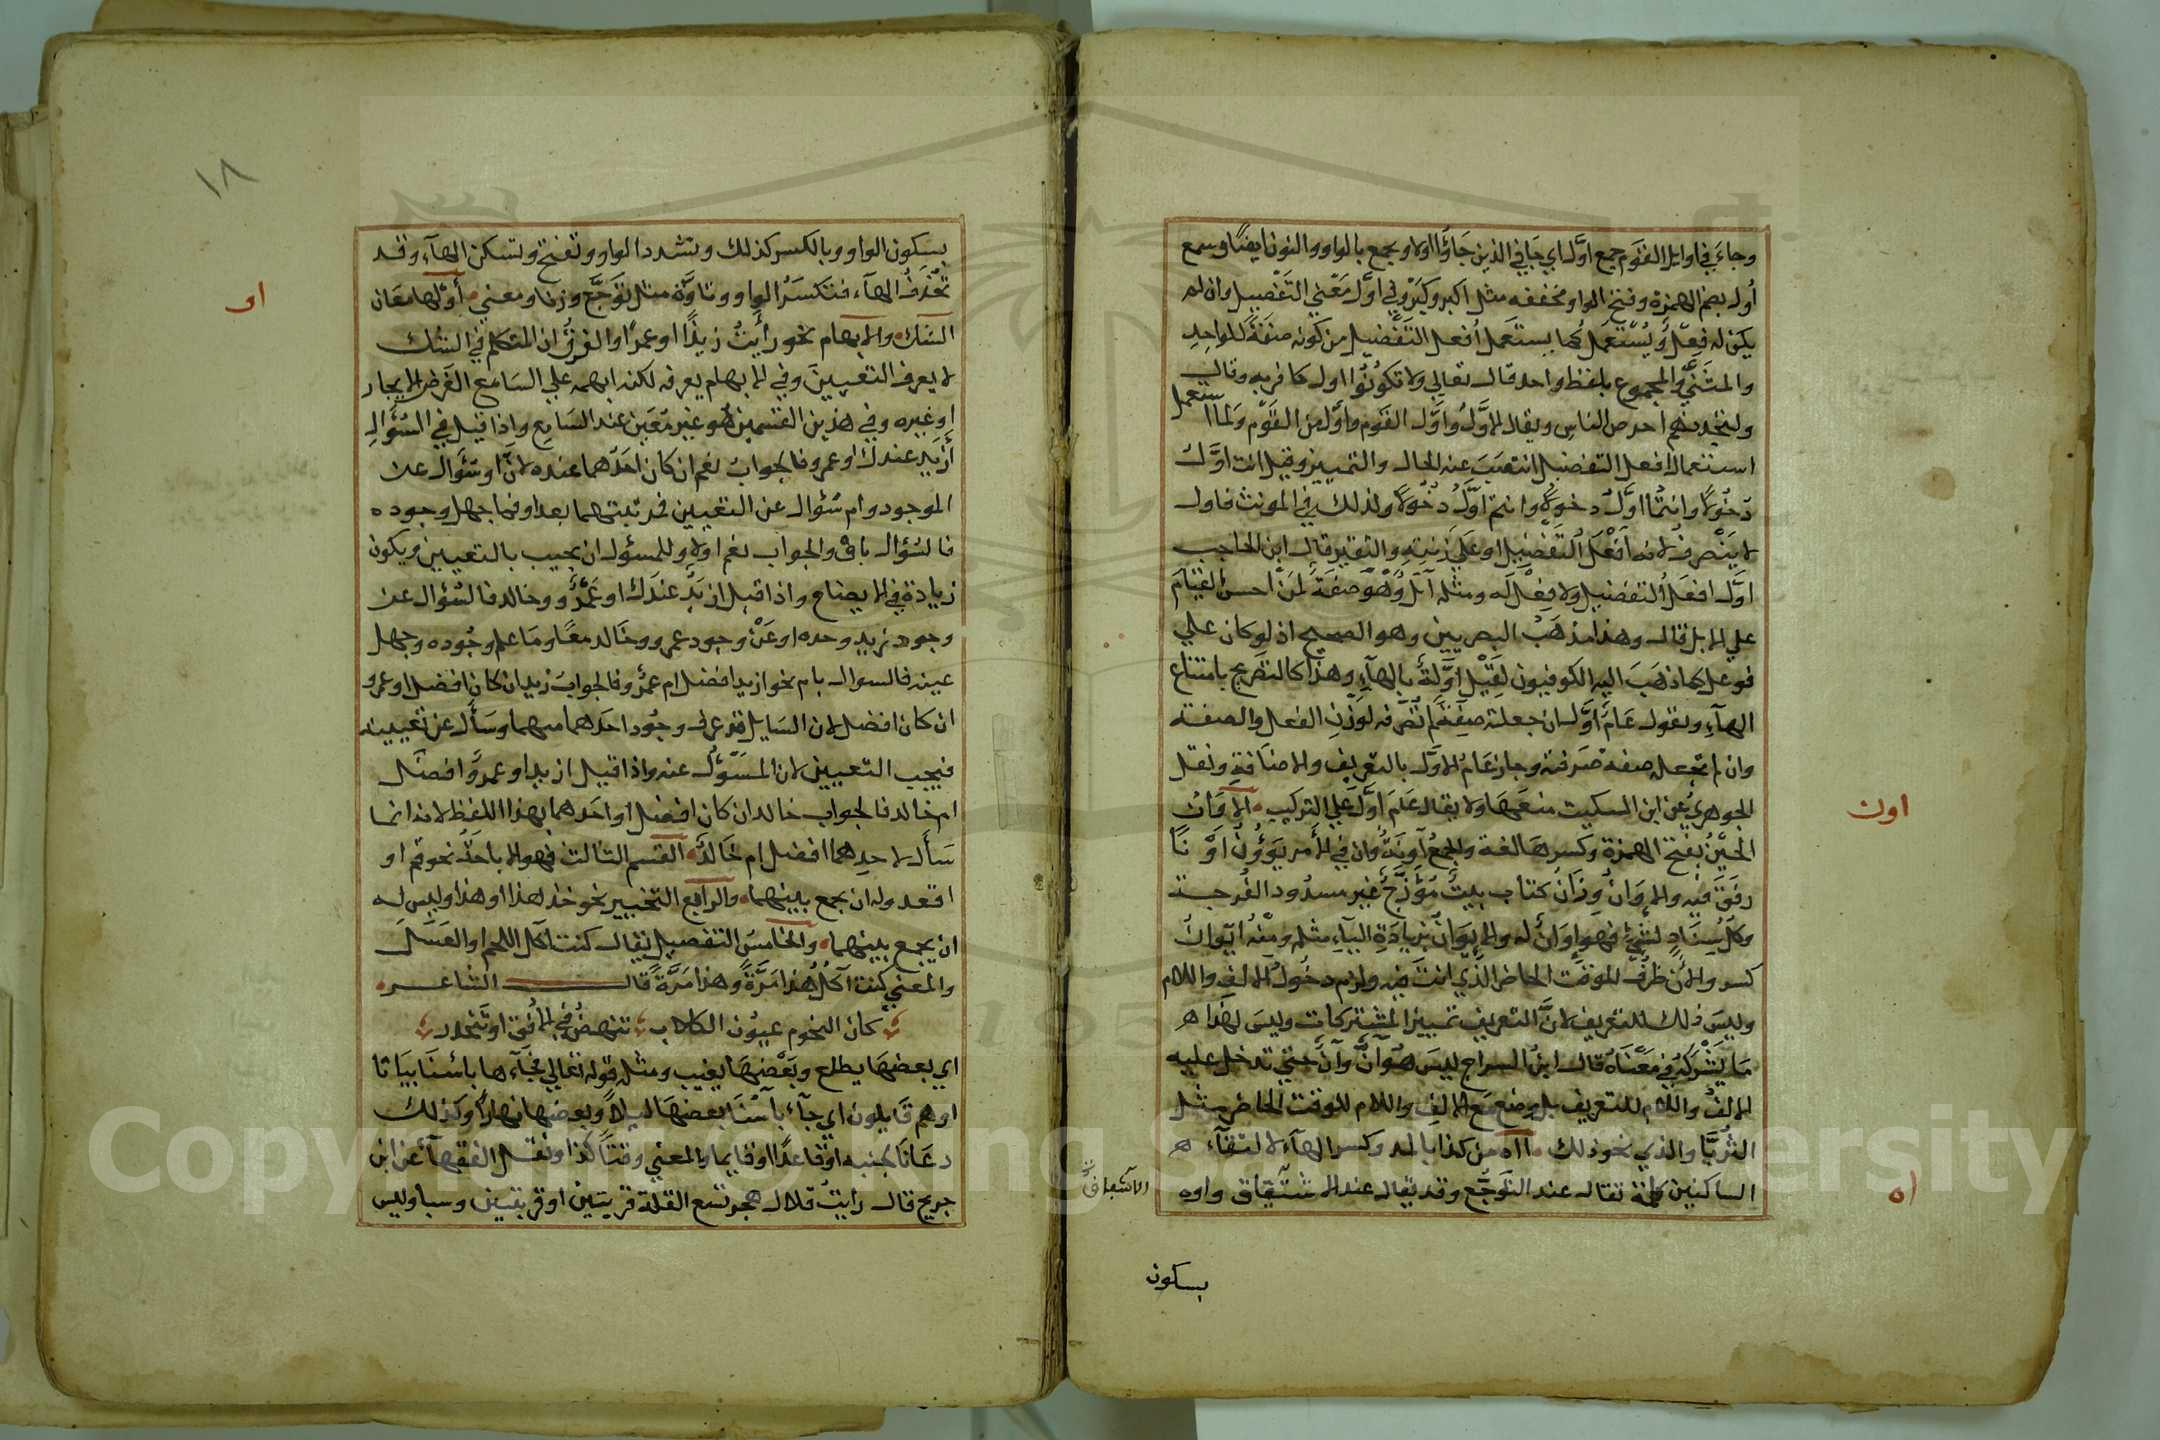 وجاء في اوايل القوم جمع اول اي جافي الذين جاؤا اولا ويجمع بالواو والنون ايضا وسمع
أول بضم الهمزة وفتح الواو مخففه مثل اكبر وكبر وفي اول معني التفضيل وان لم
يكن له فعل ويستعمل كما يستعمل أفعل التفضيل من كونه صفة للواحد
والمثني والمجموع بلفظ واحد قال تعالي ولا تكونوا اول كافر به وقال
ولتجدنهم احرص الناس ويقال الاول واول القوم واول من القوم ولما استعمل
استعمال افعل التفضيل انتصب عنه الحال والتمييز وقيل انت اول
دخولا وانتما اول دخولا وانتم اول دخولا وكذلك في المونث فاول
لا ينصرف لانه افعل التفضيل او علي زنته قال ابن الحاجب
اول افعل التفضيل ولا فعل له ومثله آبل وهو صفة لمن احسن القيام
علي الابل قال وهذا مذهب البصريين وهو الصحيح اذ لو كان علي
فوعل كما ذهب اليه الكوفيون لقيل اولة بالهاء وهذا كالتصريح بامتناع
الهاء وتقول عام اول ان جعلته صفة لم تصرفه لوزن الفعل والصفة
وان لم تجعله صفة صرفته وجاز عام الاول بالتعريف والاضافة ونقل
الجوهري عن ابن السكيت منعها ولا يقال عام اول علي التركيب الاوان
الحين بفتح الهمزة وكسرها لغة والجمع آونة وآن في الامر يؤون اونا
رفق فيه والاوان وزان كتاب بيت مؤزج غير مسدود الفرجة
وكل سناد لشيء فهو اوان له والايوان بزيادة الياء مثله ومنه ايوان
كسري والآن ظرف للوقت الحاضر الذي انت فيه ولزم دخول الالف واللام
وليس ذلك للتعريف لان التعريف تمييز المشتركات وليس لهذا
ما يشركه في معناه قال ابن السراج ليس هو آن وآن حتي تدخل عليه
الالف واللام للتعريف بل وضع مع الالف واللام للوقت الحاضر مثل
الثريا والذي نحو ذلك آه من كذا بالمد وكسر الهاء لالتقاء
الساكنين كلمة تقال عند التوجع وقد تقال عند الاشفاق واوه
اون
اه
بسكون
١٨
بسكون الواو وبالكسر كذلك وتشدد الواو وتفتح وتسكن الهاء وقد
تحذف الهاء فتكسر الواو وتاوه مثل توجع وزنا ومعني او لها معان
الشك والابهام نحو رأيت زيدا او عمرا والفرق ان المتكلم في الشك
لا يعرف التعيين وفي الابهام يعرفه لكنه ابهمه علي السامع لغرض الايجاز
او غيره وفي هذين القسمين هو غير معين عند السامع واذا قيل في السؤال
أزيد عندك او عمرو فالجواب نعم ان كان احدهما عنده لان او سؤال عن
الموجود وام سؤال عن التعيين فمرتبتهما بعد او فما جهل وجوده
فالسؤال باو والجواب نعم او لا وللمسؤل ان يجيب بالتعيين ويكون
زيادة في الايضاح واذا قيل ازيد عندك او عمرو وخالد فالسؤال عن
وجود زيد وحده او عن وجود عمرو وخالد معا وما علم وجوده وجهل
عينه فالسوال بام نحو ازيد افضل ام عمرو فالجواب زيد ان كان افضل او عمرو
ان كان افضل لان السايل قد عرف وجود احدهما مبهما وسأل عن تعيينه
فيجب التعيين لان المسؤل عنه واذا قيل ازيد او عمرو افضل
ام خالد فالجواب خالد ان كان افضل او احدهما بهذا اللفظ لانه انما
سأل لاحدهما افضل ام خالد القسم الثالث فهو الاباحة نحو قم او
اقعد وله ان يجمع بينهما والرابع التخيير نحو خذ هذا او هذا وليس له
ان يجمع بينهما والخامس التفصيل يقال كنت آكل اللحم او العسل
والمعني كنت آكل هذا مرة وهذا مرة قال الشاعر
كان النجوم عيون الكلاب تنهض في الافق او تنحدر
اي بعضها يطلع وبعضها يغيب ومثله قوله تعالي فجآءها بأسنا بياتا
او هم قايلون اي جآء بأسنا بعضها ليلا وبعضها نهارا وكذلك
دعانا لجنبه او قاعدا او قايما والمعني وقتا كذا ونقل الفقهآء عن ابن
جريج قال رايت قلال هجر تسع القلة قربتين او قربتين وسيا وليس
او
Copyright © King Saud University